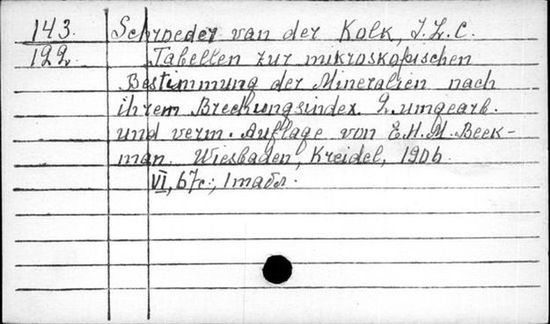 143. Schroeder van der Kolk, J.L.C.
122 Tabellen zur mikroskopischen
Bestimmung der Mineralien nach
ihrem Brechungsindex. 2. umgearb.
und verm. Auflage von E.H.M. Beek-
man. Wiesbaden, Kreidel, 1906.
VI, 67с., 1табл.